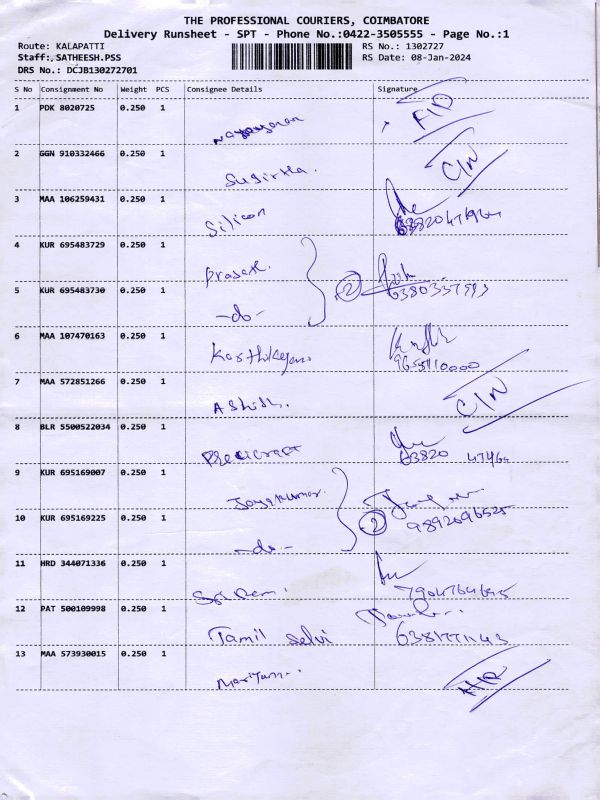 THE PROFESSIONAL COURIERS, COIMBATORE
Delivery Runsheet - SPT - Phone No.:0422-3505555 - Page No.:1
Route: KALAPATTI RS No.: 1302727
Staff: SATHEESH.PSS RS Date: 08-Jan-2024
DRS No.: DCJB130272701
S No Consignment No Weight PCS Consignee Details Signature
1 PDK 8020725 0.250 1
2 GGN 910332466 0.250 1 Sugirtha. C/N
3 MAA 106259431 0.250 1 Silicon
4 KUR 695483729 0.250 1 Prasath. 2
5 KUR 695483730 0.250 1 -do-
6 MAA 107470163 0.250 1 Karthikeyan
7 MAA 572851266 0.250 1 Ashish. C/N
8 BLR 5500522034 0.250 1
9 KUR 695169007 0.250 1 Jayakumar.
10 KUR 695169225 0.250 1 -do- 2
11 HRD 344071336 0.250 1
12 PAT 500109998 0.250 1 Tamil Selvi
13 MAA 573930015 0.250 1